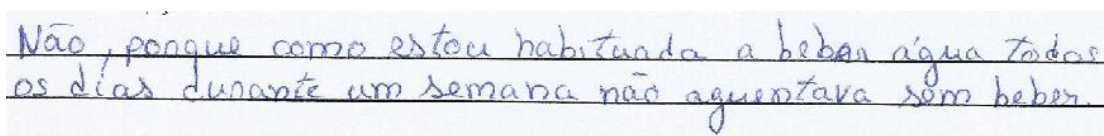 Não, porque como estou habituada a beber água todos
os dias durante um semana não aguentava sem beber.